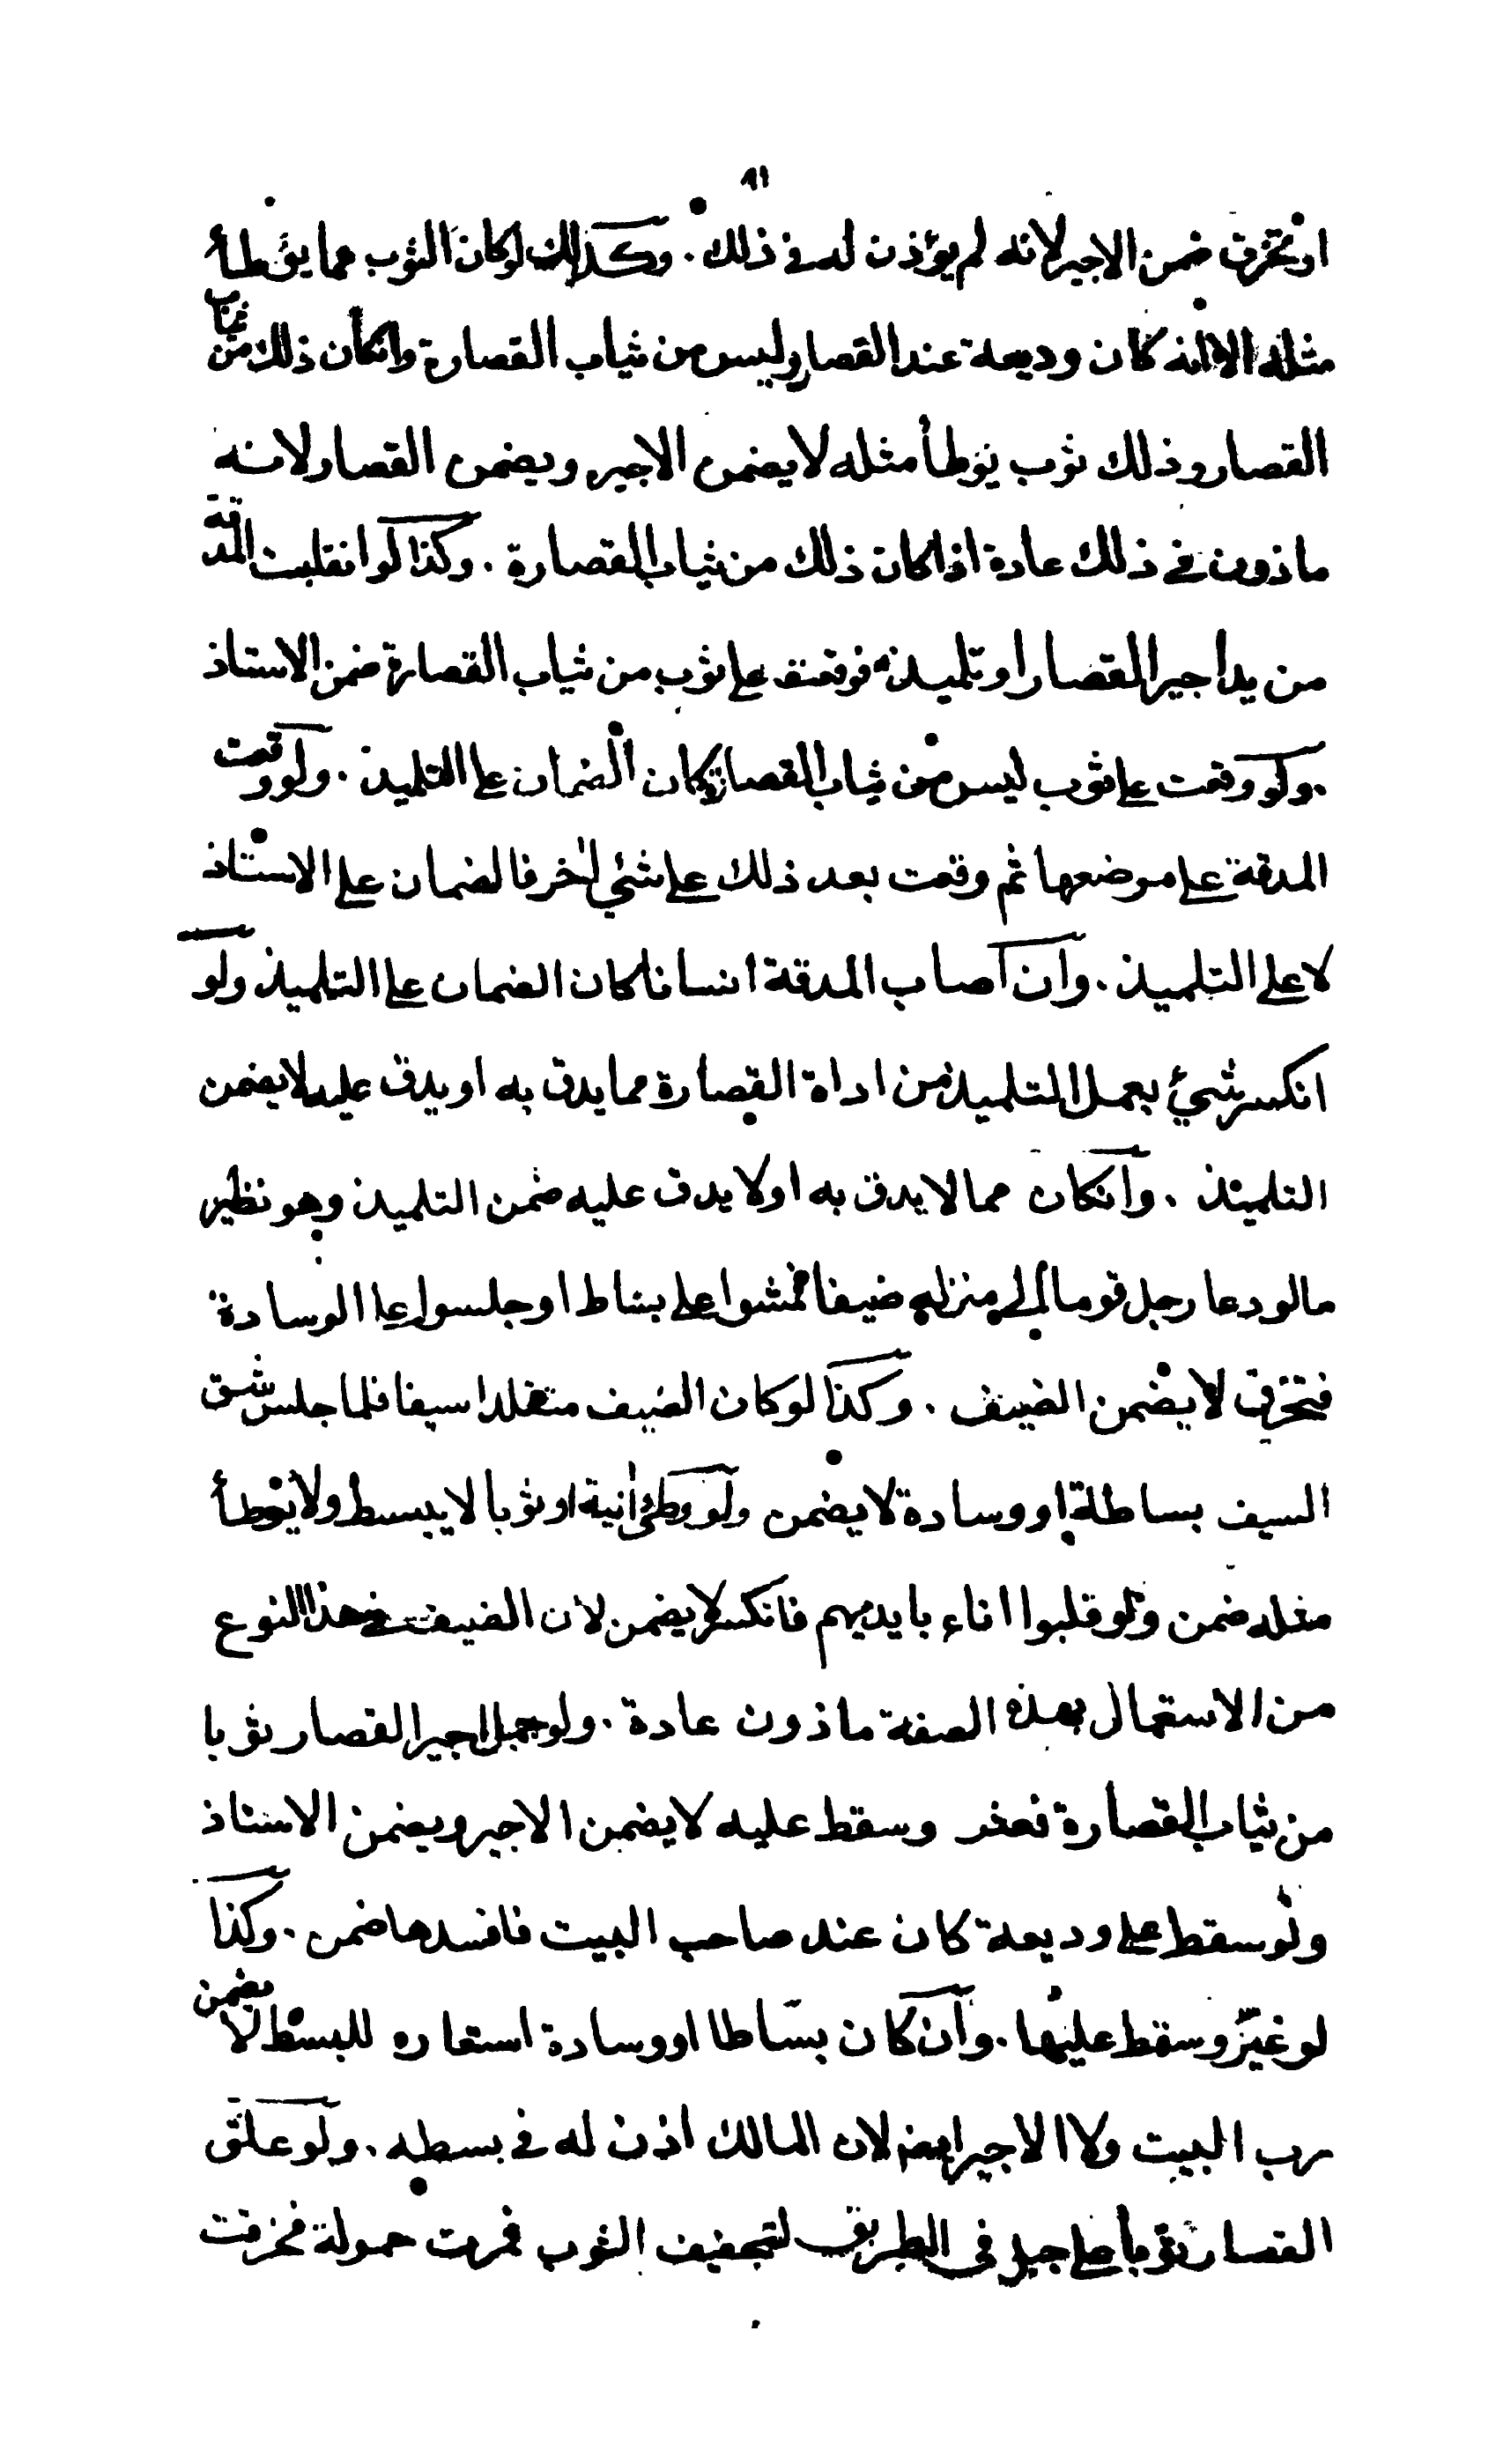 ٩١
او تخرق ضمن الاجير لانه لم يؤذن له فى ذلك . وكذلك لو كان الثوب مما يؤطأ
مثله الا انه كان وديعة عند القصار وليس من ثياب القصارة وانكان ذلك من ثياب
القصار وذلك ثوب يوطأ مثله لا يضمن الاجير ويضمن القصار لانه
ماذون فى ذلك عادة اذا كان ذلك من ثياب القصارة . وكذا لو انفلتت المدقة
من يد اجير القصار او تلميذه فوقعت على ثوب من ثياب القصارة ضمن الاستاذ
. ولو وقعت على ثوب ليس من ثياب القصارة كان الضمان على التلميذ . ولو وقعت
المدقة على موضعها ثم وقعت بعد ذلك على شئ اخر فالضمان على الاستاذ
لا على التلميذ . وان اصاب المدقة انسانا كان الضمان على التلميذ ولو
انكسر شئ بعمل التلميذ من اداة القصارة مما يدق به او يدق عليه لا يضمن
التلميذ . وانكان مما لا يدق به او لا يدق عليه ضمن التلميذ وهو نظير
ما لو دعا رجل قوما الى منزله ضيفا فمشوا على بساط او جلسوا على الوسادة
فتخرق لا يضمن الضيف . وكذا لو كان الضيف متقلدا سيفا فلما جلس شق
السيف بساطا او وسادة لا يضمن ولو وطئ انية او ثوبا لا يبسط ولا يوطأ
مثله ضمن ولو قلبوا اناء بايديهم فانكسر لا يضمن لان الضيف فى هذا النوع
من الاستعمال بهذه الصفة ماذون عادة . ولو حمل اجير القصار ثوبا
من ثياب القصارة فعثر وسقط عليه لا يضمن الاجير ويضمن الاستاذ
ولو سقط على وديعة كان عند صاحب البيت فافسدها ضمن . وكذا
لو عثر وسقط عليها . وان كان بساطا او وسادة استعاره للبسط لا يضمن
رب البيت ولا الاجير ايضا لان المالك اذن له فى بسطه . ولو علق
القصار ثوبا على حبل فى الطريق لتجفيف الثوب فمرت حمولة فخرقت